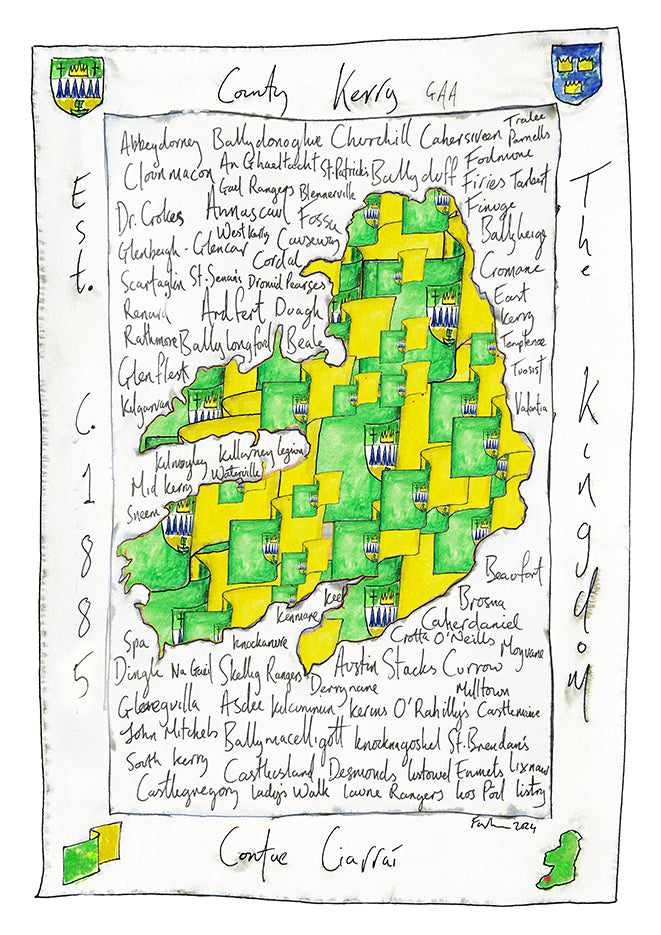 County Kerry GAA
Est. C. 1885
The Kingdom
Abbeydorney Ballydonoghue Churchill Cahersiveen Tralee Parnells
Clounmacon An Ghaeltacht St Patricks Ballyduff Fodmore
Gael Rangers Blennerville Firies Tarbert
Dr. Crokes Annascaul Fossa Finuge
West Kerry Causeway Ballyheige
Glenbeigh - Glencar Cordal
Scartaglin St. Senans Dromid Pearses Cromane
Renard Ardfert Duagh East Kerry
Rathmore Ballylongford Beale Templenoe
Glenflesk Tuosist
Kilgarvan Valentia
Kilmoyley Killarney legion
Mid Kerry Waterville
Sneem
Beaufort
Kenmare Keel Brosna
Caherdaniel
Spa Knockanure Crotta O'Neills Moyvane
Dingle Na Gaeil Skellig Rangers Austin Stacks Currow
Derrynane Milltown
Gleneguilla Asdee Kilcummin Kerins O'Rahilly's Castlemaine
John Mitchels Ballymacelligott Knocknagoshel St. Brendan's
South Kerry Castleisland Desmonds listowel Emmets Lixnaw
Castlegregory lady's Walk laune Rangers los Pól listry
2024
Contae Ciarraí